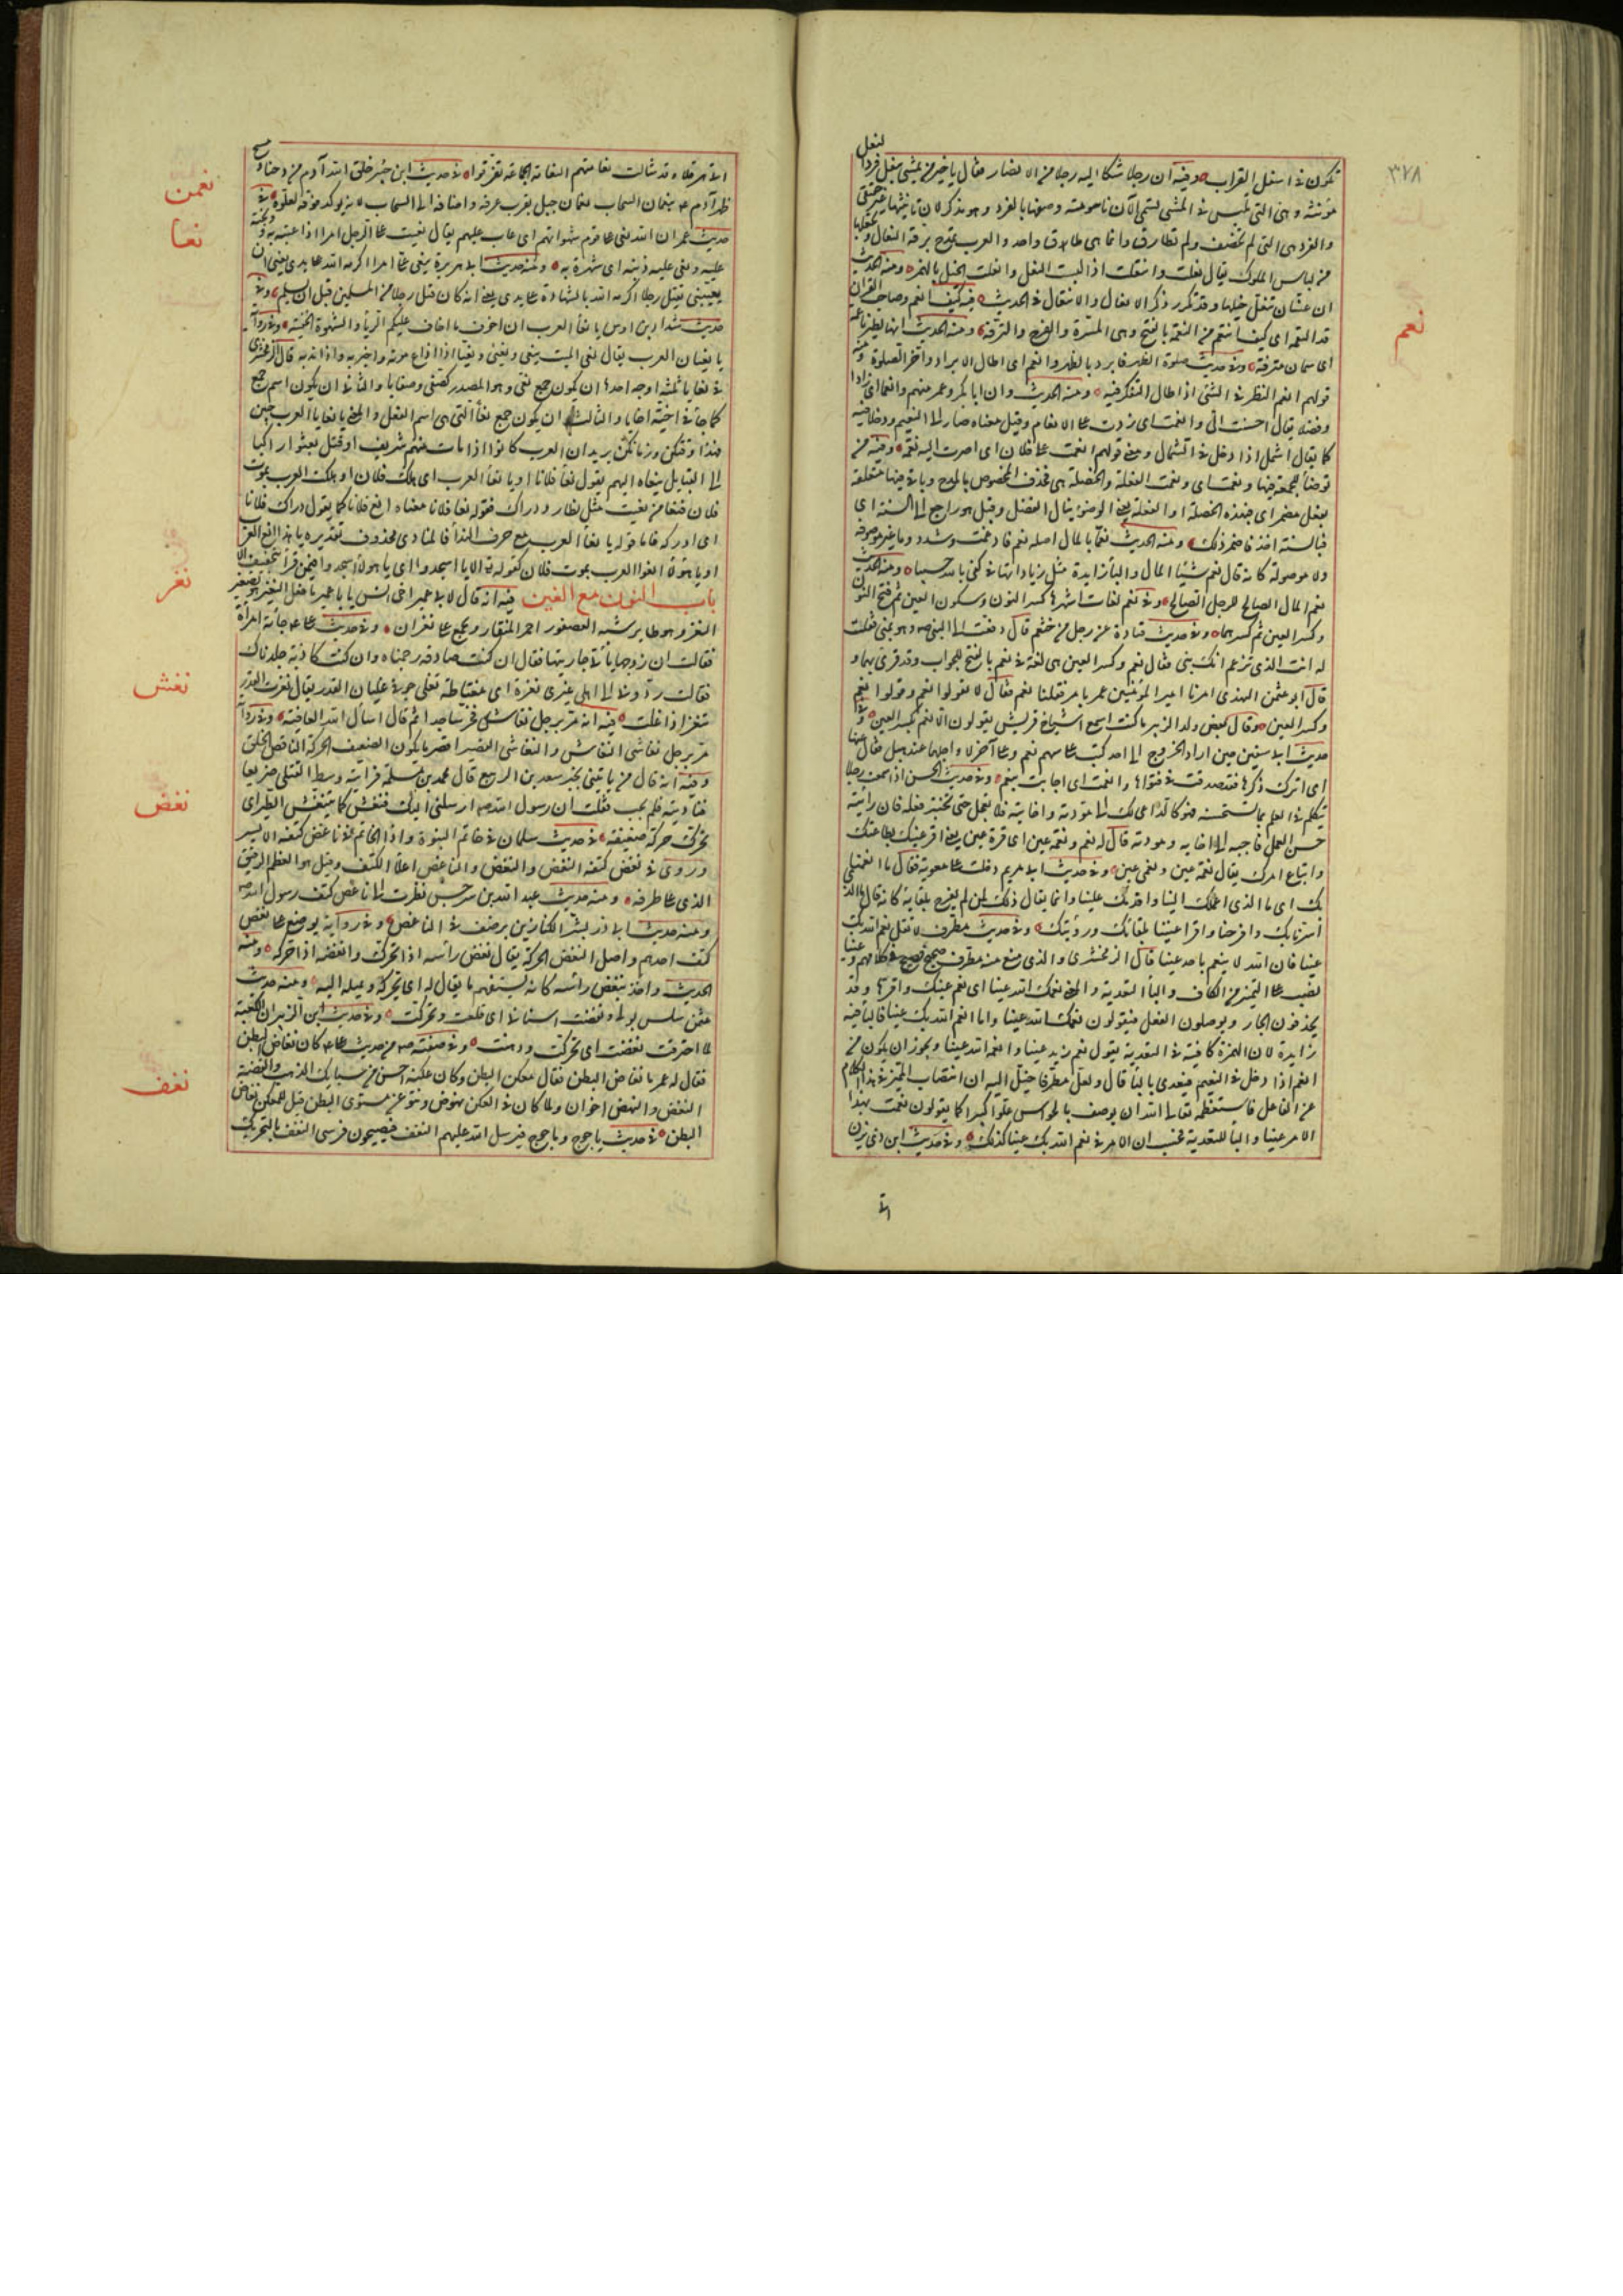 ٣٧٨
تكون في اسفل القراب وفيه ان رجلا شكا اليه رجلا من الانصار فقال يا خير من يمشي بنعل فرد النعل
مؤنثة وهي التي تلبس في المشي تسمى الآن تاسومة وصفها بالفرد وهو مذكر لان تانيثها غير حقيقي
والفرد هي التي لم تخصف ولم تطارق وانما هي طاق واحد والعرب تمدح برقة النعال وتجعلها
من لباس الملوك يقال نعلت وانتعلت اذا لبست النعل وانعلت الخيل بالهمز ومنه الحديث
ان غسان تنعل خيلها وقد تكرر ذكر الانعال والانتعال في الحديث فيه كيف انعم وصاحب القرن
قد التقمه اي كيف اتنعم من النعمة بالفتح وهي المسرة والفرح والترفه ومنه الحديث انها لطير ناعمة
اي سمان مترفة وفي حديث صلوة الظهر فابرد بالظهر وانعم اي اطال الابراد واخر الصلوة ومنه
قولهم انعم النظر في الشئ اذا اطال التفكر فيه ومنه الحديث وان ابا بكر وعمر منهم وانعما اي زادا
وفضلا يقال احسنت الي وانعمت اي زدت على الانعام وقيل معناه صارا الى النعيم ودخلا فيه
كما يقال اشمل اذا دخل في الشمال ومعنى قولهم انعمت على فلان اي اصرت اليه نعمة وفيه من
توضأ للجمعة فبها ونعمت اي ونعمت الفعلة والخصلة هي فحذف المخصوص بالمدح وبا فبها متعلقة
بفعل مضمر اي فبهذه الخصلة او الفعلة يعني الوضوء ينال الفضل وقيل هو راجع الى السنة اي
فبالسنة اخذ فاضمر ذلك ومنه الحديث نعما بالمال اصله نعم ما فادغمت وشدد وما غير موصوفة
ولا موصولة كانه قال نعم شيئا المال والباء زايدة مثل زيادتها في كفى بالله حسيبا ومنه الحديث
نعم المال الصالح للرجل الصالح وفي نعم لغات اشهرها كسر النون وسكون العين ثم فتح النون
وكسر العين ثم كسرهما وفي حديث قتادة عن رجل من خثعم قال دفعت الى النبي صه وهو بمنى فقلت
له انت الذي تزعم انك نبي فقال نعم وكسر العين هي لغة في نعم بالفتح للجواب وقد قرئ بهما و
قال ابو عثمن النهدي امرنا امير المؤمنين عمر بامر فقلنا نعم فقال لا تقولوا نعم وقولوا نعم
وكسر العين وقال بعض ولد الزبير ما كنت اسمع اشياخ قريش يقولون الا نعم بكسر العين وفي
حديث ابي سفين حين اراد الخروج الى احد كتب على سهم نعم وعلى آخر لا واجلهما عند هبل فقال عنها
اي اترك ذكرها فقد صدقت في فتواها وانعمت اي اجابت بنعم وفي حديث الحسن اذا سمعت رجلا
يتكلم في العلم بما تستحسنه فهو كالداعي لك الى مودته واخايه فلا تعجل حتى تختبر فعله فان رأيته
حسن العمل فاجبه الى اخايه ومودته قال له نعم ونعمة عين اي قرة عين يعني اقر عينك بطاعتك
واتباع امرك يقال نعمة عين ونعمى عين وفي حديث ابي مريم دخلت على معوية فقال ما انعمنا
بك اي ما الذي اعملك الينا واقدمك علينا وانما يقال ذلك لمن يفرح بلقائه كانه قال ما الذي
اسرنا بك وافرحنا واقر اعيننا بلقائك ورؤيتك وفي حديث مطرف لا تقل نعم الله بك
عينا فان الله لا ينعم باحد عينا قال الزمخشري والذي منع منه مطرف صحيح فصيح في كلامهم وعينا
نصب على التميز من الكاف والباء للتعدية والمعنى نعمك الله عينا اي نعم عينك واقرها وقد
يحذفون الجار ويوصلون الفعل فيقولون نعمك الله عينا واما انعم الله بك عينا فالباء فيه
زايدة لان الهمزة كافية في التعدية يقول نعم زيد عينا وانعمه الله عينا ويجوز ان يكون من
انعم اذا دخل في النعيم فيعدى بالباء قال ولعل مطرفا خيل اليه ان انتصاب التميز في هذا الكلام
عن الفاعل فاستعظمه تعالى الله ان يوصف بالحواس علوا كبيرا كما يقولون نعمت بهذا
الامر عينا والباء للتعدية فحسب ان الامر في نعم الله بك عينا كذلك وفي حديث ابن ذي يزن
نعم
اتى هرقلا وقد شالت نعامتهم النعامة الجماعة تفرقوا في حديث ابن جبير خلق الله آدم من دحنا ومسح
ظهر آدم عم بنعمان السحاب نعمان جبل بقرب عرفة واضافه الى السحاب لانه يركد فوقه لعلوه في
حديث عمر ان الله نعى على قوم شهواتهم اي عاب عليهم يقال نعيت على الرجل امرا اذا عبته به ووبخته
عليه ونعى عليه ذنبه اي شهره به ومنه حديث ابي هريرة ينعى على امرا اكرمه الله على يدي يعني ان
يعيبني بقتلي رجلا اكرمه الله بالشهادة على يدي يعني انه كان قتل رجلا من المسلمين قبل ان يسلم وفي
حديث شداد بن اوس يا نعاء العرب ان اخوف ما اخاف عليكم الرياء والشهوة الخفية وفي رواية
يا نعيان العرب يقال نعى الميت ينعى ونعيا اذا اذاع موته واخبر به واذا ندبه قال الزمخشري
في نعايا ثلثة اوجه احدها ان يكون جمع نعي وهو المصدر كصفي وصفايا والثاني ان يكون اسم جمع
كما جاء في اخية اخايا والثالث ان يكون جمع نعاء التي هي اسم الفعل والمعنى يا نعايا العرب جئن
فهذا وقتكن وزمانكن يريد ان العرب كانوا اذا مات منهم شريف او قتل بعثوا راكبا
الى القبايل ينعاه اليهم يقول نعاء فلانا او يا نعاء العرب اي هلك فلان او هلكت العرب بموت
فلان فنعاء من نعيت مثل نظار ودراك فقوله نعاء فلانا معناه انع فلانا كما يقول دراك فلانا
اي ادركه فاما قوله يا نعاء العرب مع حرف النداء فالمنادى محذوف تقديره يا هذا انع العرب
او يا هؤلاء انعوا العرب بموت فلان كقوله تعالى الا يا اسجدوا اي يا هؤلاء اسجدوا فيمن قرأ بتخفيف الا
باب النون مع الغين فيه انه قال لابي عمير اخي انس يا با عمير ما فعل النغير هو تصغير
النغر وهو طاير يشبه العصفور احمر المنقار ويجمع على نغران وفي حديث على عم جاءته امرأة
فقالت ان زوجها ياتي جاريتها فقال ان كنت صادقة رجمناه وان كنت كاذبة جلدناك
فقالت ردوني الى اهلي غيرى نغرة اي مغتاظة تغلي جوفي غليان القدر يقال نغرت القدر
تنغر اذا غلت فيه انه مر برجل نغاش فخر ساجدا ثم قال اسأل الله العافية وفي رواية
مر برجل نغاشي النغاش والنغاشي القصير اقصر ما يكون الضعيف الحركة الناقص الخلق
وفيه انه قال من ياتيني بخبر سعد بن الربيع قال محمد بن مسلمة فرايته وسط القتلى صريعا
فناديته فلم يجب فقلت ان رسول الله صه ارسلني اليك فتنغش كما يتنغش الطير اي
تحرك حركة ضعيفة في حديث سلمان في خاتم النبوة واذا الخاتم في ناغض كتفه الايسر
وروي في نغض كتفه النغض والنغض والناغض اعلا الكتف وقيل هو العظم الرقيق
الذي على طرفه ومنه حديث عبد الله بن سرجس نظرت الى ناغض كتف رسول الله صه
ومنه حديث ابي ذر بشر الكنازين برضف في الناغض وفي رواية يوضع على نغض
كتف احدهم واصل النغض الحركة يقال نغض رأسه اذا تحرك وانغضه اذا حركه ومنه
الحديث واخذ ينغض رأسه كانه يستفهم ما يقال له اي يحركه ويميله اليه ومنه حديث
عثمن سلس بولي ونغضت اسناني اي قلقت وتحركت وفي حديث ابن الزبير ان الكعبة
لما احترقت نغضت اي تحركت ووهنت وفي صفته صه من حديث على عم كان نغاض البطن
فقال له عمر ما نغاض البطن فقال معكن البطن وكان عكنه احسن من سبايك الذهب والفضة
النغض والنهض اخوان ولما كان في العكن نهوض ونتو عن مستوى البطن قيل للمعكن نغاض
البطن في حديث ياجوج وماجوج فيرسل الله عليهم النغف فيصبحون فرسى النغف بالتحريك
نعمن
نعا
نغر
نغش
نغض
نغف